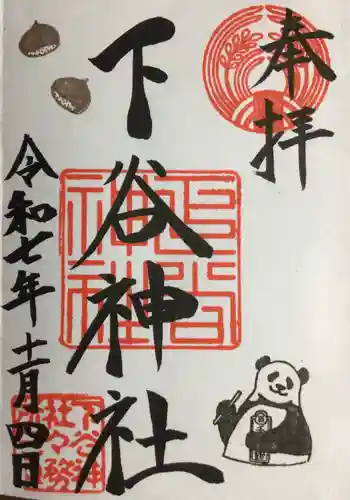 奉拝
下谷神社
下谷神社
令和七年十一月四日
下谷神社々務所